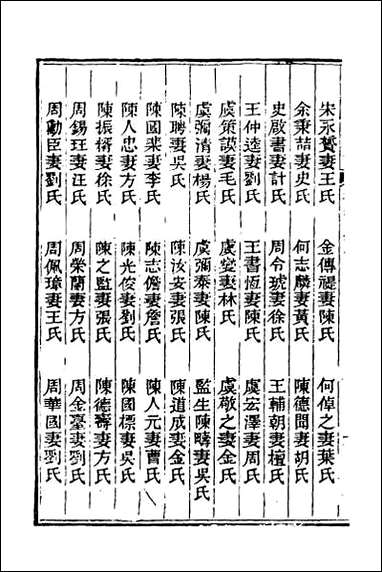 朱永贊妻王氏 金傳禔妻陳氏 何倬之妻葉氏
余秉喆妻史氏 何志麟妻黃氏 陳德聞妻胡氏
史啟書妻計氏 周令琥妻徐氏 王輔朝妻檀氏
王仲逵妻劉氏 王書恆妻陳氏 虞宏澤妻周氏
虞策談妻毛氏 虞變妻林氏 虞敬之妻金氏
虞彌清妻楊氏 虞彌泰妻陳氏 監生陳疇妻吳氏
陳聘妻吳氏 陳汝安妻張氏 陳道成妻金氏
陳國棐妻李氏 陳志儋妻詹氏 陳人元妻曹氏
陳人忠妻方氏 陳光俊妻劉氏 陳國標妻吳氏
陳振楈妻徐氏 陳之監妻張氏 陳德壽妻方氏
周錫玨妻汪氏 周榮蘭妻方氏 周金臺妻劉氏
周勳臣妻劉氏 周佩璋妻王氏 周華國妻劉氏